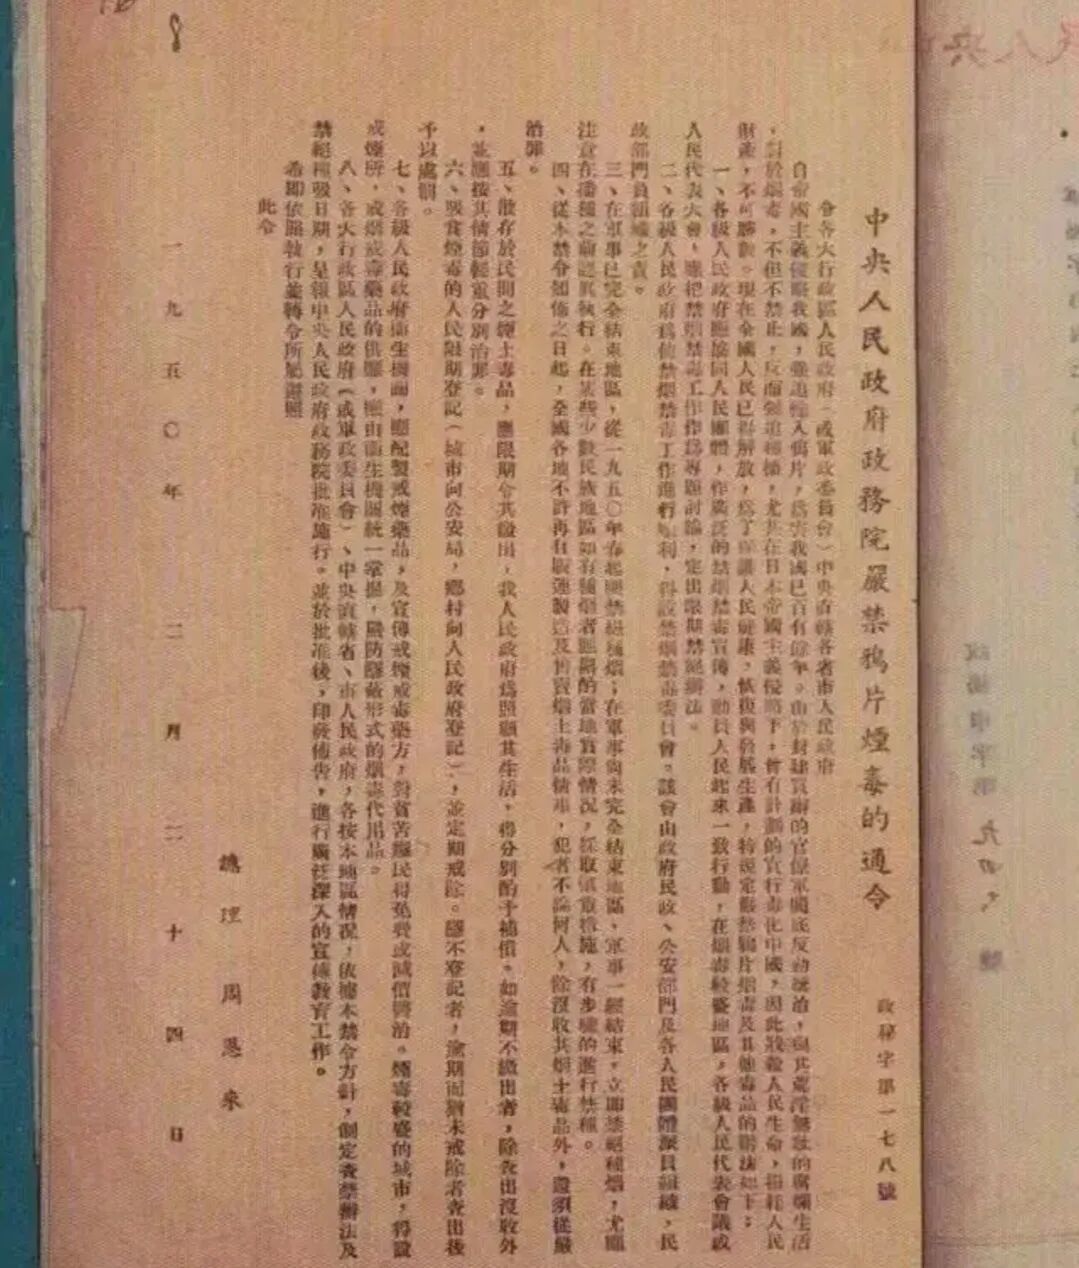 中央人民政府政務院嚴禁鴉片煙毒的通令
政秘字第一七八號
令各大行政區人民政府（或軍政委員會）中央直轄各省市人民政府
自帝國主義侵略我國，強迫輸入鴉片，危害我國已百有餘年。由於封建買辦的官僚軍閥底反動統治，與其荒淫無恥的腐爛生活
，對於烟毒，不但不禁止，反而強迫種植，尤其在日本帝國主義侵略下，曾有計劃的實行毒化中國，因此戕殺人民生命，損耗人民
財產，不可勝數。現在全國人民已得解放，爲了保護人民健康，恢復與發展生產，特規定嚴禁鴉片烟毒及其他毒品的辦法如下：
一、各級人民政府應協同人民團體，作廣泛的禁烟禁毒宣傳，動員人民起來一致行動，在烟毒較盛地區，各級人民代表會議或
人民代表大會，應把禁烟禁毒工作作爲專題討論，定出限期禁絕辦法。
二、各級人民政府爲使禁烟禁毒工作進行順利，得設禁烟禁毒委員會。該會由政府民政、公安部門及各人民團體派員組織，民
政部門負組織之責。
三、在軍事已完全結束地區，從一九五〇年春起應禁絕種烟；在軍事尚未完全結束地區，軍事一經結束，立即禁絕種烟，尤應
注意在播種之前認眞執行。在某些少數民族地區如有種烟者應斟酌當地實際情況，採取愼重措施，有步驟的進行禁種。
四、從本禁令頒佈之日起，全國各地不許再有販運製造及售賣烟土毒品情事，犯者不論何人，除沒收其烟土毒品外，還須從嚴
治罪。
五、散存於民間之煙土毒品，應限期令其繳出，我人民政府爲照顧其生活，得分別酌予補償。如逾期不繳出者，除查出沒收外
，並應按其情節輕重分別治罪。
六、吸食煙毒的人民限期登記（城市向公安局，鄉村向人民政府登記），並定期戒除。隱不登記者，逾期而猶未戒除者查出後
予以處罰。
七、各級人民政府衛生機關，應配製戒煙藥品，及宣傳戒煙戒毒藥方，對貧苦癮民得免費或減價醫治。煙毒較盛的城市，得設
戒煙所，戒烟戒毒藥品的供應，應由衛生機關統一掌握，嚴防隱蔽形式的烟毒代用品。
八、各大行政區人民政府（或軍政委員會）、中央直轄省、市人民政府，各按本地區情況，依據本禁令方針，制定查禁辦法及
禁絕種吸日期，呈報中央人民政府政務院批准施行。並於批准後，印發佈告，進行廣泛深入的宣傳教育工作。
希卽依照執行並轉令所屬遵照
此令
總理　周恩來
一九五〇年二月二十四日